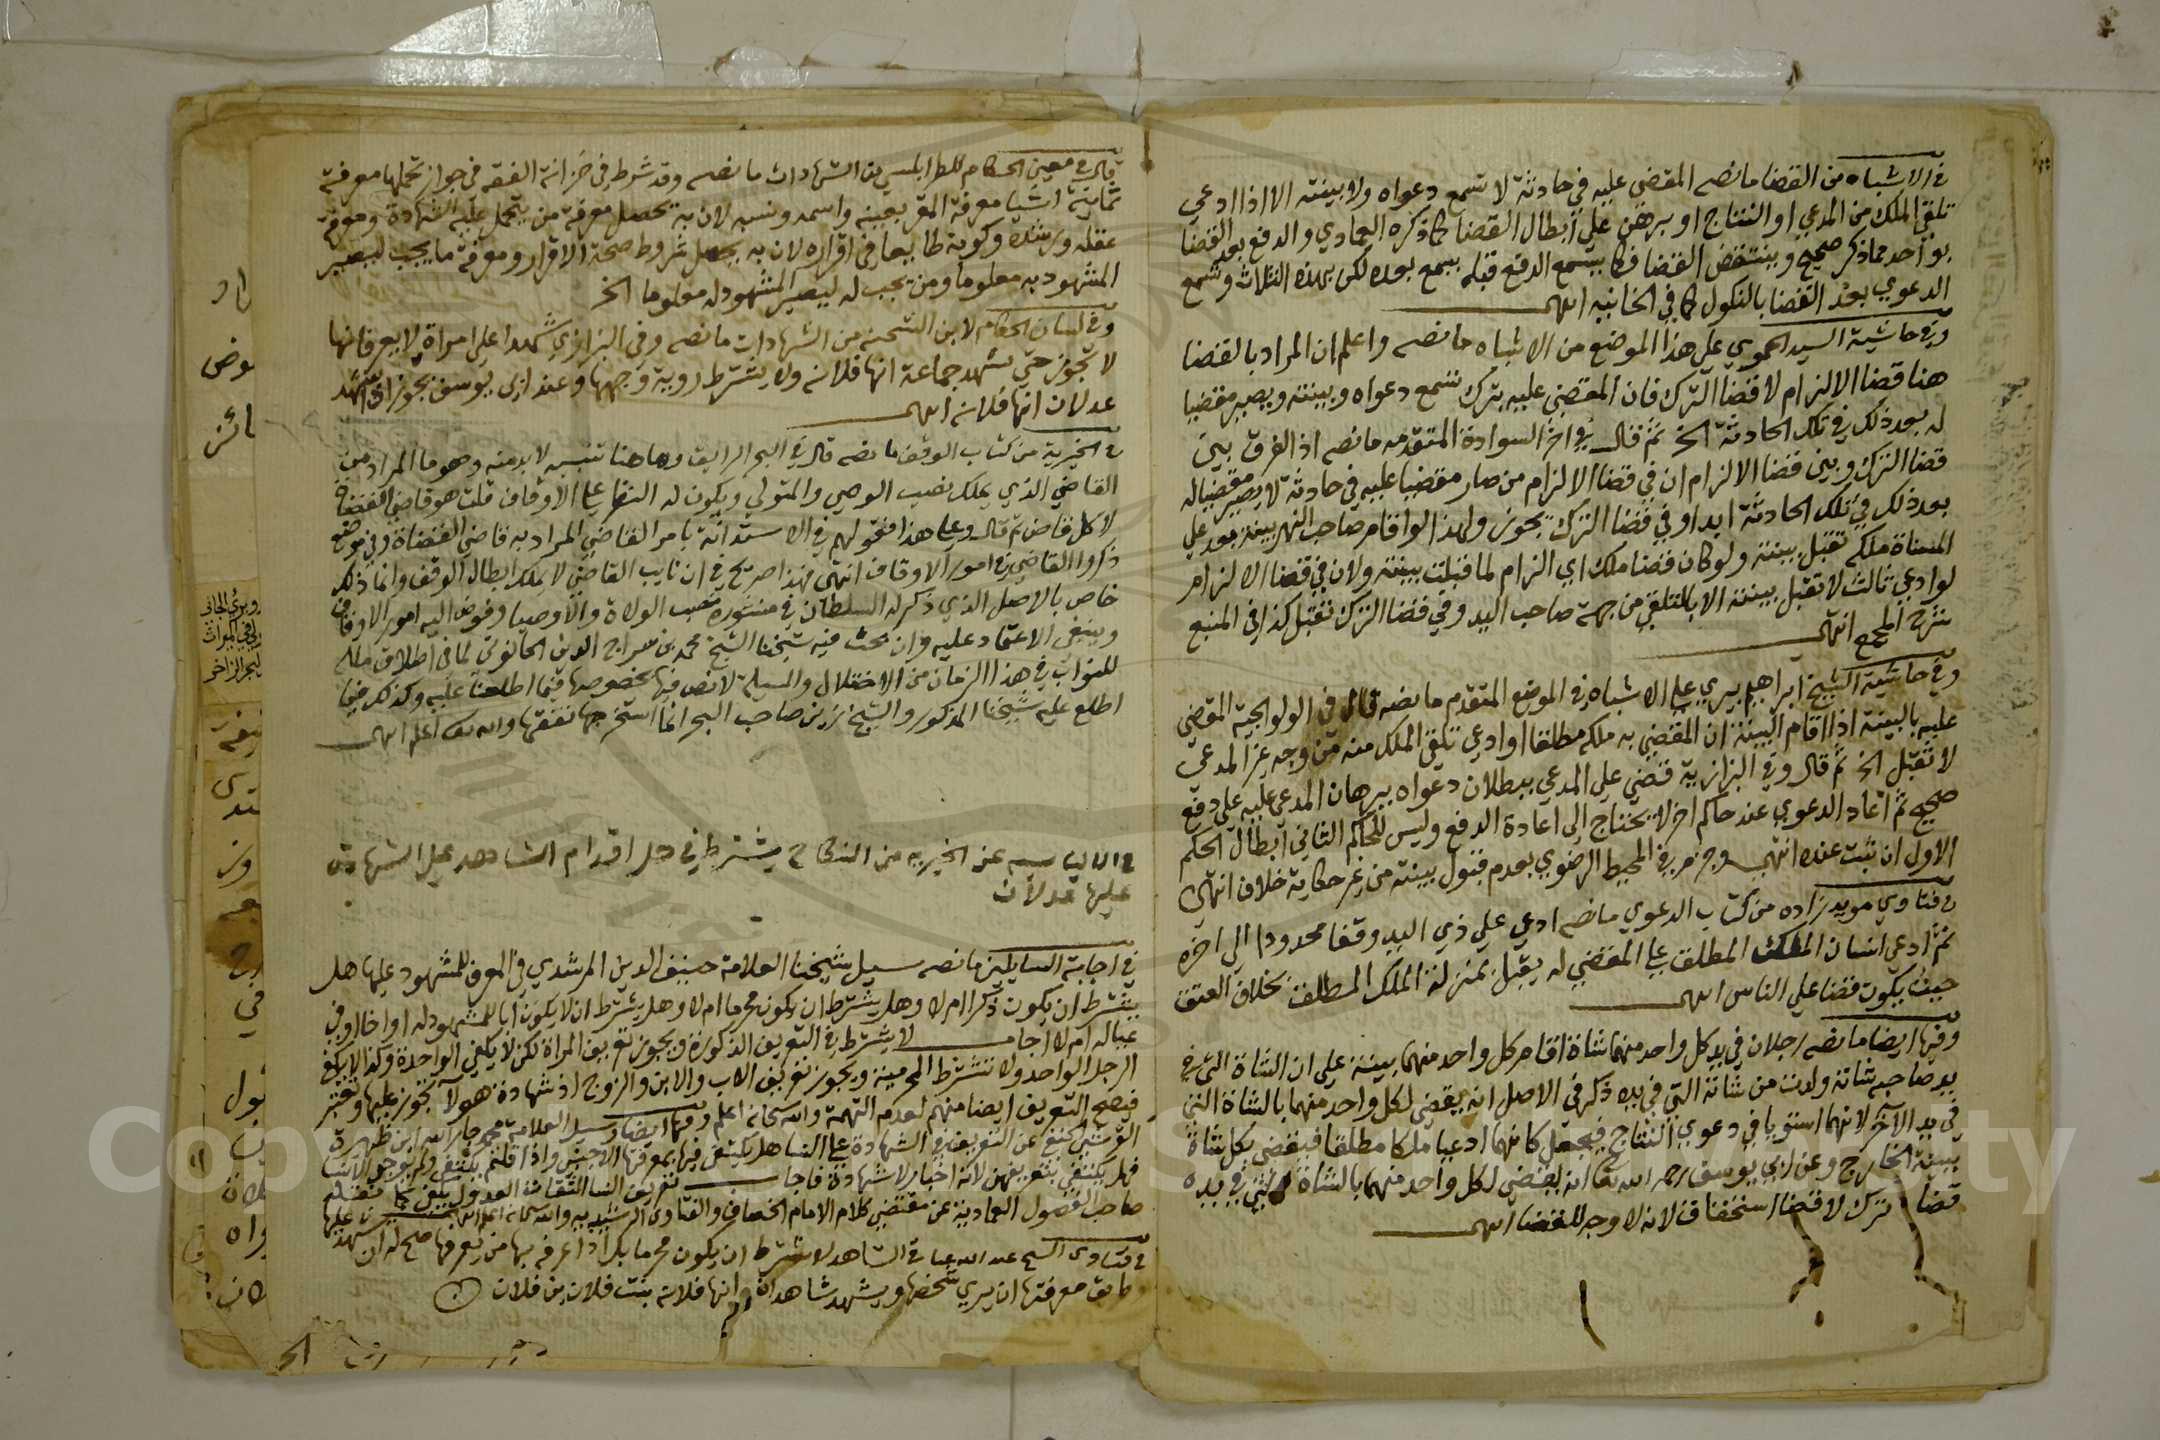 في الاشباه من القضا ما نصه المقضي عليه في حادثة لا تسمع دعواه ولا بينته الا اذا ادعي
تلقي الملك من المدعي او النتاج او برهن علي ابطال القضا كما ذكره العمادي والدفع بعد القضا
بواحد مما ذكر صحيح وينتقض القضا فكما يسمع الدفع قبله يسمع بعده لكن بهذه الثلاث وتسمع
الدعوي بعد القضا بالنكول كما في الخانيه انتهى
وفي حاشية السيد الحموي علي هذا الموضع من الاشباه ما نصه واعلم ان المراد بالقضا
هنا قضا الالزام لا قضا الترك فان المقضي عليه بترك تسمع دعواه وبينته ويصير مقضيا
له بعد ذلك في تلك الحادثة الخ ثم قال في اخر السوادة المتقدمه ما نصه اذ الفرق بين
قضا الترك وبين قضا الالزام ان في قضا الالزام من صار مقضيا عليه في حادثة لا يصير مقضيا له
بعد ذلك في تلك الحادثة ابدا وفي قضا الترك يجوز ولهذا لو اقام صاحب النهر بينة بعد علي
المسناة ملكه تقبل بينته ولو كان قضا ملك اي الزام لما قبلت بينته ولان في قضا الالزام
لو ادعي ثالث لا تقبل بينته الا بالتلقي من جهة صاحب اليد وفي قضا الترك تقبل كذا في المنبع
شرح المجمع انتهى
وفي حاشية الشيخ ابراهيم بيري علي الاشباه في الموضع المتقدم ما نصه قال في الولوالجية المقضي
عليه بالبينة اذا اقام البينة ان المقضي به ملكه مطلقا او ادعي تلقي الملك منه من وجه غير المدعي
لا تقبل الخ ثم قال وفي البزازية قضي علي المدعي ببطلان دعواه ببرهان المدعي عليه علي دفع
صحيح ثم اعاد الدعوي عند حاكم اخر لا يحتاج الي اعادة الدفع وليس للحاكم الثاني ابطال الحكم
الاول ان ثبت عنده انتهى وجزم في المحيط الرضوي بعدم قبول بينته من غير حكاية خلاف انتهى
في فتاوي مويد زاده من كتاب الدعوي ما نصه ادعي علي ذي اليد وقفا محدودا الي اخره
ثم ادعي انسان الملك المطلق علي المقضي له يقبل بمنزلة الملك المطلق بخلاف العتق
حيث يكون قضا علي الناس انتهى
وفيها ايضا ما نصه رجلان في يد كل واحد منهما شاة اقام كل واحد منهما بينة علي ان الشاة التي في
يد صاحبه شاته ولدت من شاته التي في يده ذكر في الاصل انه يقضي لكل واحد منهما بالشاة التي
في يد الآخر لانهما استويا في دعوي النتاج فيجعل كانهما ادعيا ملكا مطلقا فيقضي بكل شاة
ببينة الخارج وعن ابي يوسف رحمه الله تعا انه يقضي لكل واحد منهما بالشاة التي في يده
قضا ترك لا قضا استحقاق لانه لا وجه للقضا انتهى
قال في معين الحكام للطرابلسي من الشهادات ما نصه وقد شرط في خزانة الفقه في جواز تحملها معرفة
ثمانية اشيا معرفة المقر بعينه واسمه ونسبه لان به تحصل معرفة من يتحمل عليه الشهادة ومعرفة
عقله ورشده وكونه طايعا في اقراره لان به يحصل شروط صحة الاقرار ومعرفة ما يجب ليصير
المشهود به معلوما ومن يجب له ليصير المشهود له معلوما الخ
وفي لسان الحكام لابن الشحنه من الشهادات ما نصه وفي البزازي شهدا علي امراة لا يعرفانها
لا تجوز حتي تشهد جماعة انها فلانه ولا يشترط روية وجهها وعند ابي يوسف يجوز اذا شهد
عدلان انها فلانه انتهى
في الخيرية من كتاب الوقف ما نصه قال في البحر الرايق وهاهنا تنبيه لا بد منه وهو ما المراد من
القاضي الذي يملك نصب الوصي والمتولي ويكون له النظر علي الاوقاف قلت هو قاضي القضاة
لا كل قاض ثم قال وعلي هذا فقولهم في الاستدانة بامر القاضي المراد به قاضي القضاة وفي موضع
ذكروا القاضي في امور الاوقاف انتهى فهذا صريح في ان نايب القاضي لا يملك ابطال الوقف وانما ذلك
خاص بالاصل الذي ذكر له السلطان في منشوره نصب الولاة والاوصيا وفوض اليه امور الاوقاف
وينبغي الاعتماد عليه وان بحث فيه شيخنا الشيخ محمد بن سراج الدين الحانوتي لما في اطلاق مثله
للنواب في هذا الزمان من الاختلال والمسيلة لا نص فيها بخصوصها فيما اطلعنا عليه وكذلك فيما
اطلع عليه شيخنا المذكور والشيخ زين صاحب البحر انما استخرجها تفقها والله تعا اعلم انتهى
عن الخيريه من النكاح يشترط في حل اقدام الشاهد علي الشهادة
عليها عدلان
في اجابة السايلين ما نصه سيل شيخنا العلامة حنيف الدين المرشدي في المعرف للمشهود عليها هل
يشترط ان يكون ذكرا ام لا وهل يشترط ان يكون محرما ام لا وهل يشترط ان لا يكون ابا للمشهود له او اخا او في
عياله ام لا اجاب لا يشترط في التعريف الذكورة ويجوز تعريف المراة لكن لا يكفي الواحدة وكذا لا يكفي
الرجل الواحد ولا تشترط المحرمية ويجوز تعريف الاب والابن والزوج اذ شهادة هولاء تجوز عليها وتعتبر
فيصح التعريف ايضا منهم لعدم التهمة والله سبحانه اعلم وفيها ايضا وسيل العلامة محمد جار الله ابن ظهيرة
القرشي عن التعريف في الشهادة علي النسا هل يكتفي فيها بمعرفة الاجنبي واذا قلتم يكتفي ولم يوجد الا النسا
فهل يكتفي بتعريفهن لانه اخبار لا شهادة فاجاب تعريف النسا الثقات العدول يكفي كما نقله
صاحب الفصول العمادية عن مقتضي كلام الامام الخصاف والفتاوي الرشيديه والله سبحانه اعلم انتهى
في فتاوي الشيخ عبد الله في الشاهد لا يشترط ان يكون محرما بل اذا عرفه بها من يعرفها صح له ان يشهد عليها
وطريق معرفتها ان يري شخصها ويشهد شاهدان انها فلانه بنت فلان بن فلان